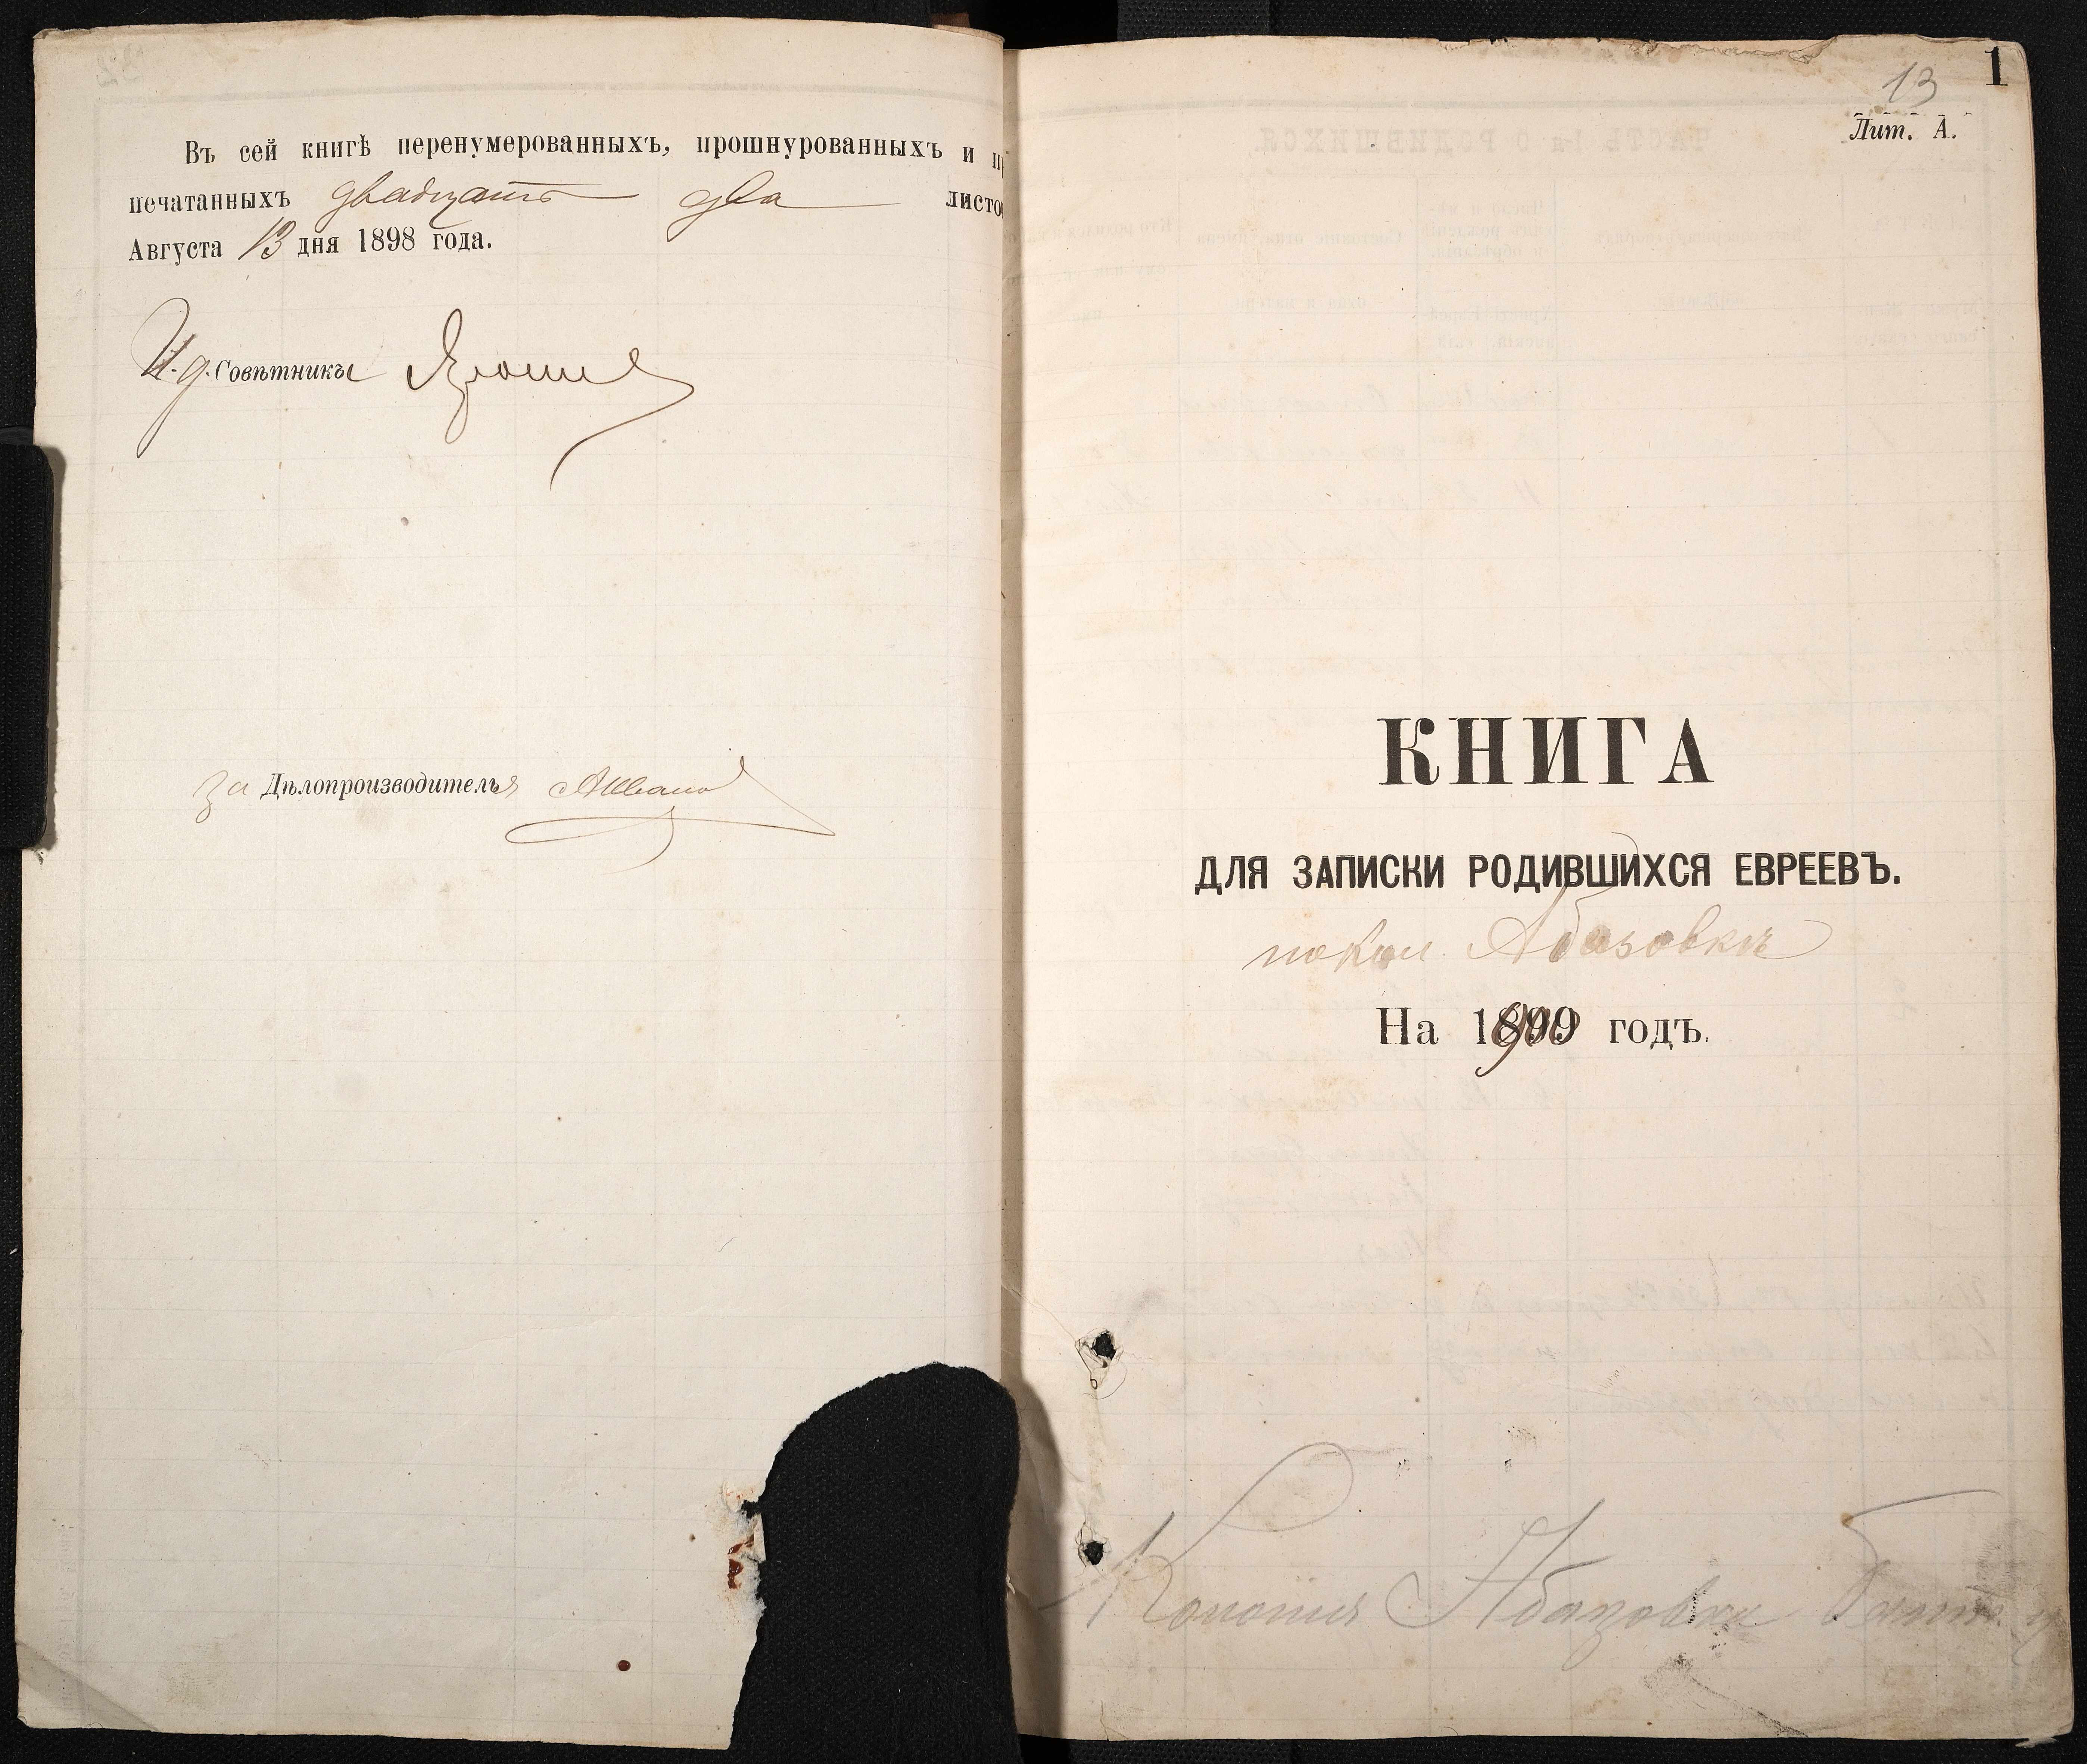 Въ сей книгѣ перенумерованныхъ, прошнурованныхъ и п
печатанныхъ двадцать два листо
Августа 13 дня 1898 года.
И. д. Совѣтника
За Дѣлопроизводителя
13
1
Лит. А.
КНИГА
ДЛЯ ЗАПИСКИ РОДИВШИХСЯ ЕВРЕЕВЪ.
по кол. Абазовкѣ
На 1900 годъ.
Колонія Абазовка